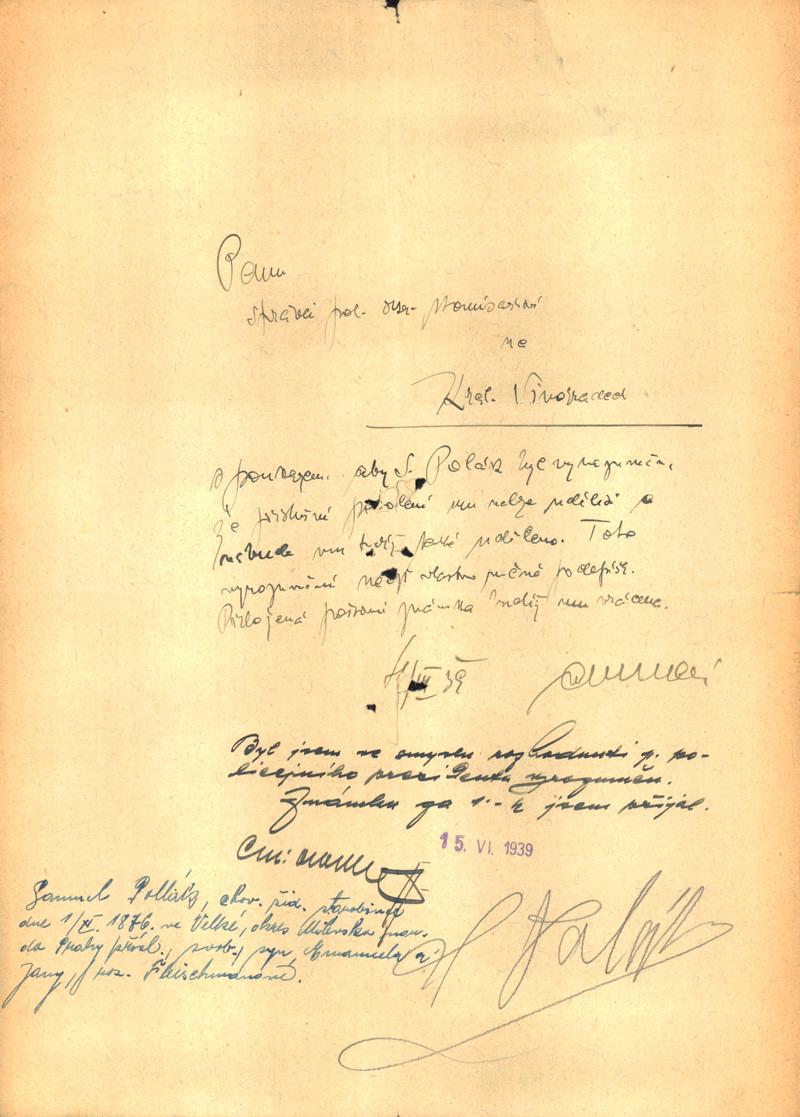 Panu
správci pol. okr. komisařství
na
Král. Vinohradech
s poukazem, aby S. Polák byl vyrozuměn,
že příslušné povolení mu nelze uděliti a
nebude mu tudíž také uděleno. Toto
vyrozumění nechť vlastnoručně podepíše.
Přiložená poštovní známka budiž mu vrácena.
39
Byl jsem ve smyslu rozhodnutí p. po-
licejního presidenta vyrozuměn.
Známku za 1.- K jsem přijal.
15. VI. 1939
Samuel Pollák,
dne 1/XI. 1876. ve Velké, okres Milevsko,
do Prahy přísl., svob., syn Emanuela a
Jany, roz. Fleischmanové.